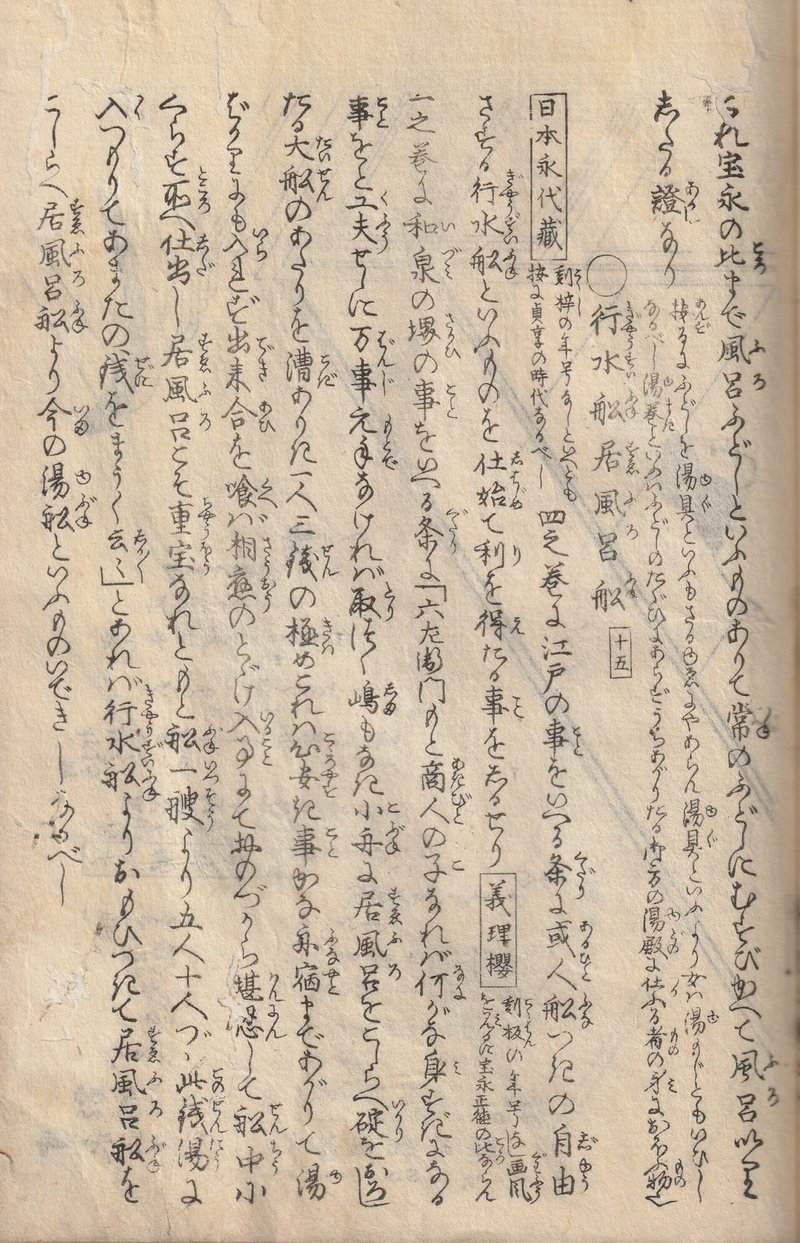 これ宝永の比まで風呂ふどしといふものありて常のふどしにむすびかへて風呂に入
しなる證なり
按るにふどしを湯具といふもさるゆゑにやあらん湯具といふより女は湯もじともいひし
なるべし湯巻といふはふどしのたぐひにあらずうちあがりたる御方の湯殿に仕ふる者の身におほふ物也
○行水舩居風呂舩 十五
日本永代藏 刻梓の年号なしといへども
按に貞享の時代なるべし
四之巻に江戸の事をいへる条に或人舩つきの自由
さする行水舩といふものを仕始て利を得たる事をしるせり 義理櫻 刻板の年号なし画風
をみるに宝永正徳の比ならん
一之巻に和泉の堺の事をいへる条に「六左衛門もと商人の子なれば何がな身すぎになる
事をと工夫せしに万事元手なければ取つく嶋もなき小舟に居風呂をこしらへ碇をおろし
たる大舩のあたりを漕ありき一人三銭の極めこれは心安き事かな舟宿まであがりて湯
ばかりにも入られず出来合を喰ば相應のとゞけ入事にておのづから堪忍して舩中小
くらき所へ仕出し居風呂こそ重宝なれともと舩一艘より五人十人づゝ此銭湯に
入つもりてあまたの銭をまうく云々」とあれば行水舩よりおもひつきて居風呂舩を
こしらへ居風呂舩より今の湯舩といふものいできしなるべし